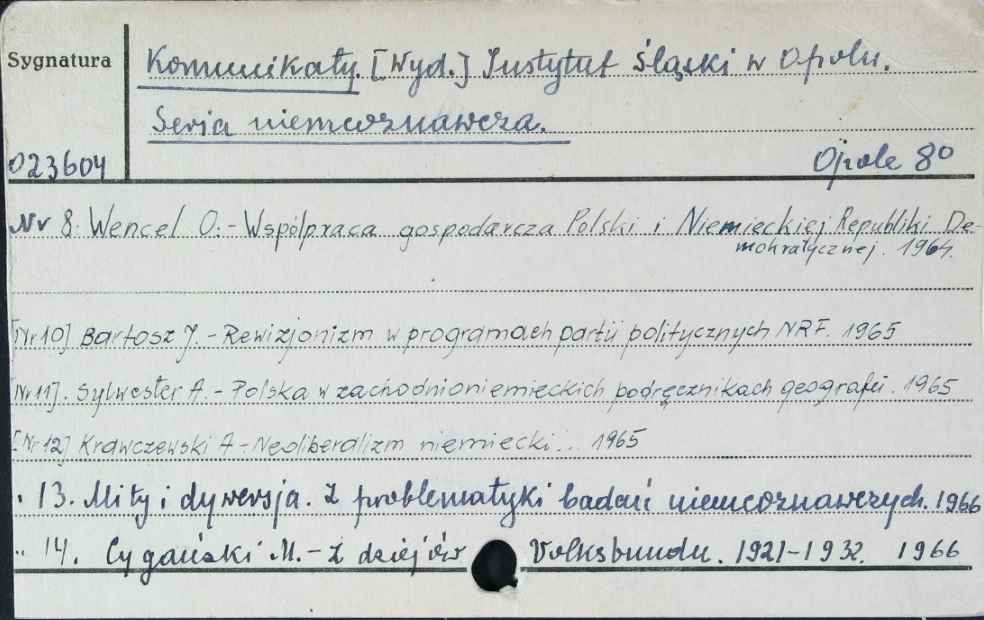 Sygnatura
Komunikaty. [Wyd.] Instytut Śląski w Opolu.
Seria niemcoznawcza.
023604
Opole 8º
Nr 8. Wencel O. - Współpraca gospodarcza Polski i Niemieckiej Republiki De-
mokratycznej. 1964.
[Nr 10] Bartosz J. - Rewizjonizm w programach partii politycznych NRF. 1965
[Nr 11]. Sylwester A. - Polska w zachodnioniemieckich podręcznikach geografii. 1965
[Nr 12] Krawczewski A - Neoliberalizm niemiecki... 1965
" 13. Mity i dywersja. Z problematyki badań niemcoznawczych. 1966
" 14. Cygański M. - Z dziejów Volksbundu. 1921-1932. 1966